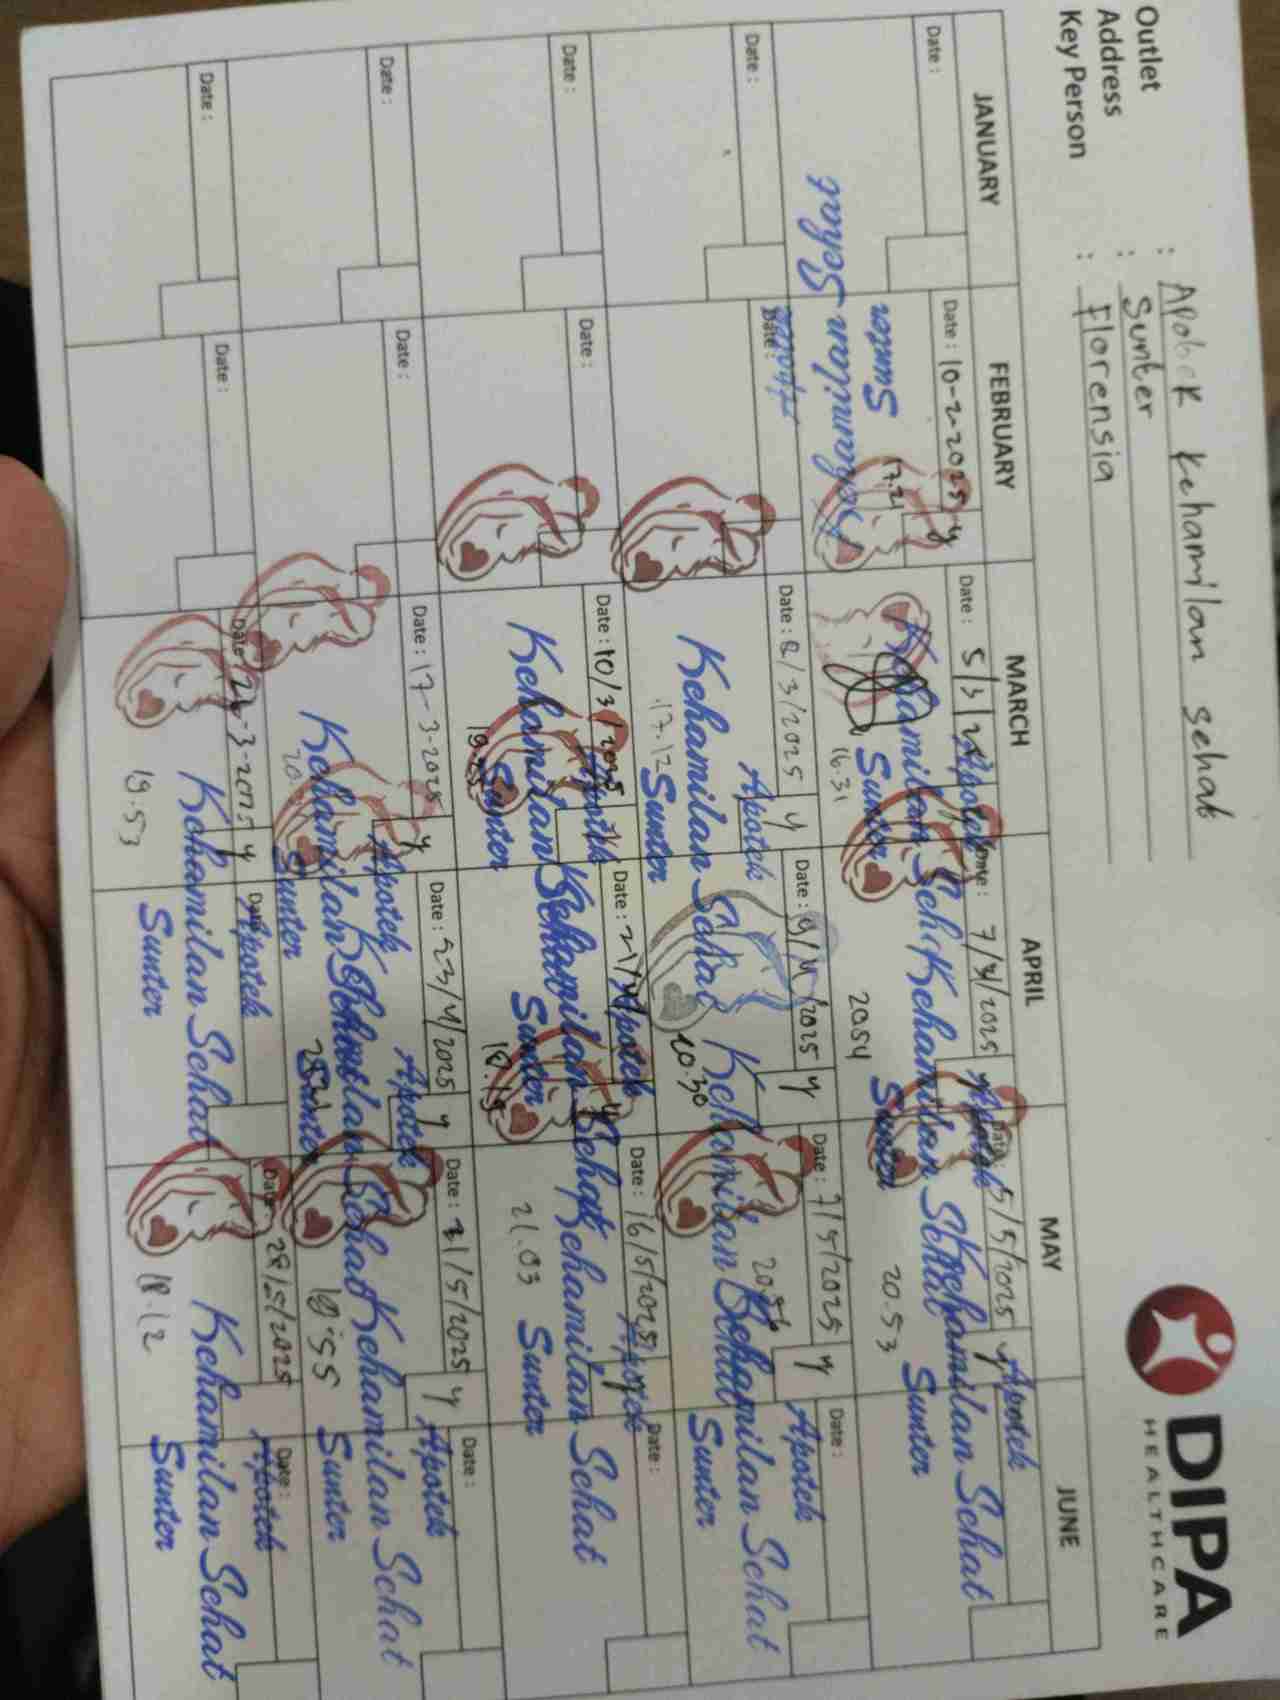 Outlet : Apotek Kehamilan Sehat
Address : Sunter
Key Person : Florensia
DIPA
HEALTHCARE
JANUARY FEBRUARY MARCH APRIL MAY JUNE
Date :
Date : 10-2-2025 y
17.21
Apotek
Kehamilan Sehat
Sunter
Date : 5/3/25
16.31
Apotek
Kehamilan Sehat
Sunter
Date : 7/4/2025 y
2054
Apotek
Kehamilan Sehat
Sunter
Date : 5/5/2025 y
20.53
Apotek
Kehamilan Sehat
Sunter
Date :
Date :
Date :
Date : 8/3/2025 y
17.12
Apotek
Kehamilan Sehat
Sunter
Date : 9/4/2025 y
20.30
Kehamilan Sehat
Date : 7/5/2025 y
Apotek
Kehamilan Sehat
Sunter
Date :
Date :
Date :
Date : 10/3/2025
Apotek
Kehamilan Sehat
Sunter
Date :
Apotek
Kehamilan Sehat
Sunter
Date : 16/5/2025 y
21.03
Apotek
Kehamilan Sehat
Sunter
Date :
Date :
Date :
Date : 17-3-2025 y
Apotek
Kehamilan Sehat
Sunter
Date : 23/4/2025 y
Apotek
Kehamilan Sehat
Sunter
Date : 21/5/2025 y
18.55
Apotek
Kehamilan Sehat
Sunter
Date :
Date :
Date :
Date : 26-3-2025 y
19.53
Apotek
Kehamilan Sehat
Sunter
Date :
Date : 28/5/2025
18.12
Apotek
Kehamilan Sehat
Sunter
Date :